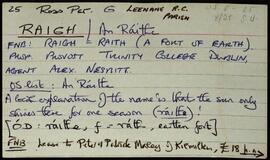 25 Ross Psc. G LEENANE R.C. PARISH
RAIGH / An Ráith
FNB: RAIGH = RAITH (A FORT OF EARTH).
PROP. PROVOST TRINITY COLLEGE DUBLIN,
AGENT ALEX. NESBITT.
OS list: An Ráith
A local explanation of the name is that the sun only
shines there for one season (ráithe)!
[Ó.D: ráithe, f = ráth, earthen fort]
FNB Leased to Peter & Patrick